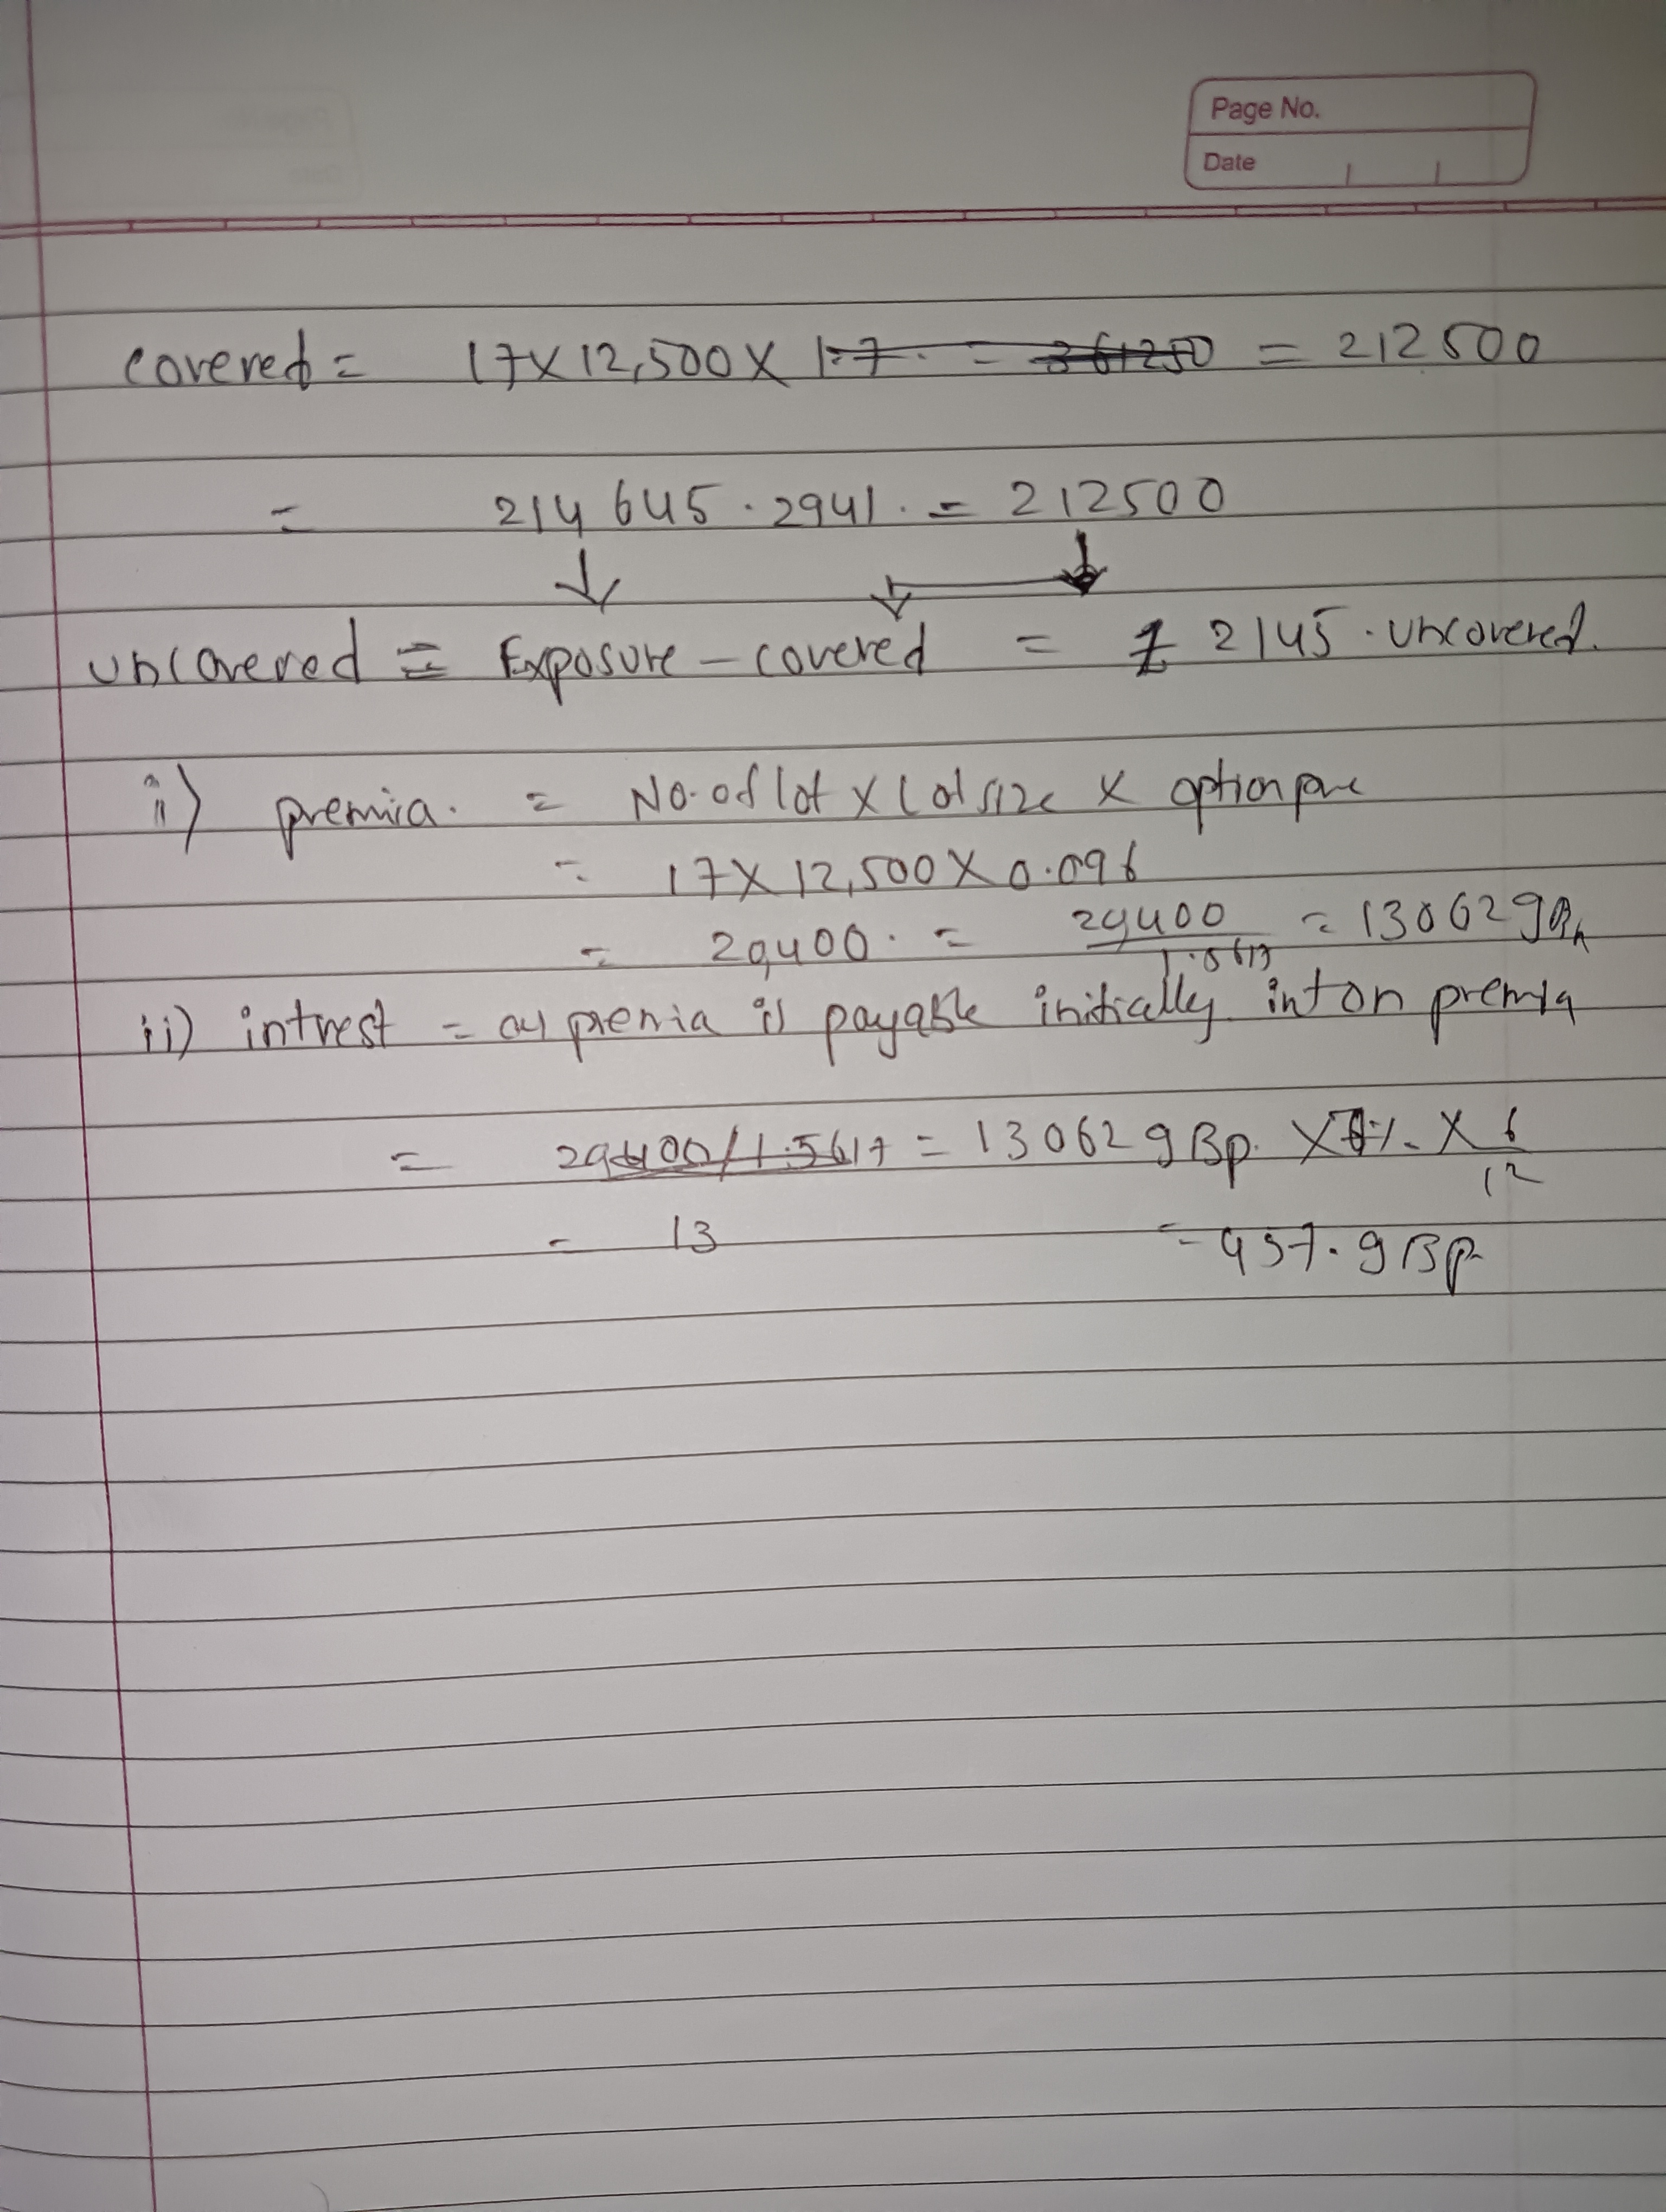 Page No.
Date
covered = 17 X 12,500 X 1.7 = 361250 = 212500
= 214645.2941. = 212500
uncovered = Exposure - covered = £ 2145. uncovered.
i) premia. = No. of lot X Lot size X option
= 17 X 12,500 X 0.096
= 20,400. = 20400 / 1.5617 = 13062 gBp
ii) intrest = as premia is payable initically int on premia
= 20400/1.5617 = 13062 gBp. X 7%. X 6/12
= 13 = 457. gBp